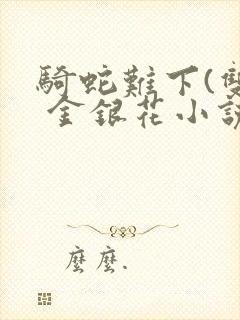 騎蛇難下(雙
金銀花小說
麼麼.